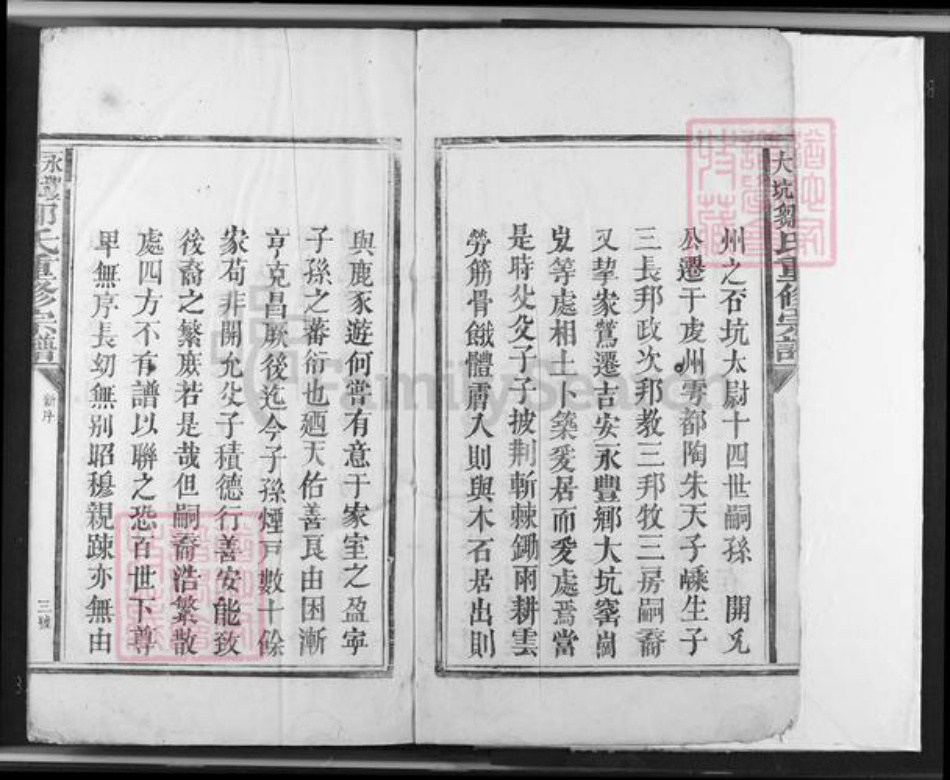 大坑鄒氏重修宗譜
州之夻坑太尉十四世嗣孫 開允
公遷于虔州雩都陶朱天子嵊生子
三長邦政次邦教三邦牧三房嗣裔
又挈家鶩遷吉安永豐鄉大坑窰崗
等處相土卜築爰居而爰處焉當
是時父父子子披荆斬棘鋤雨耕雲
勞筋骨餓體膚入則與木石居出則
與鹿豕遊何嘗有意于家室之盈寧
子孫之蕃衍也廼天佑善良由困漸
亨克昌厥後迄今子孫煙戸數十餘
家苟非開允父子積德行善安能致
後裔之繁庶若是哉但嗣裔浩繁散
處四方不有譜以聯之恐百世下尊
卑無序長幼無别昭穆親踈亦無由
永豐鄒氏重修宗譜
新序
三號
FamilySearch